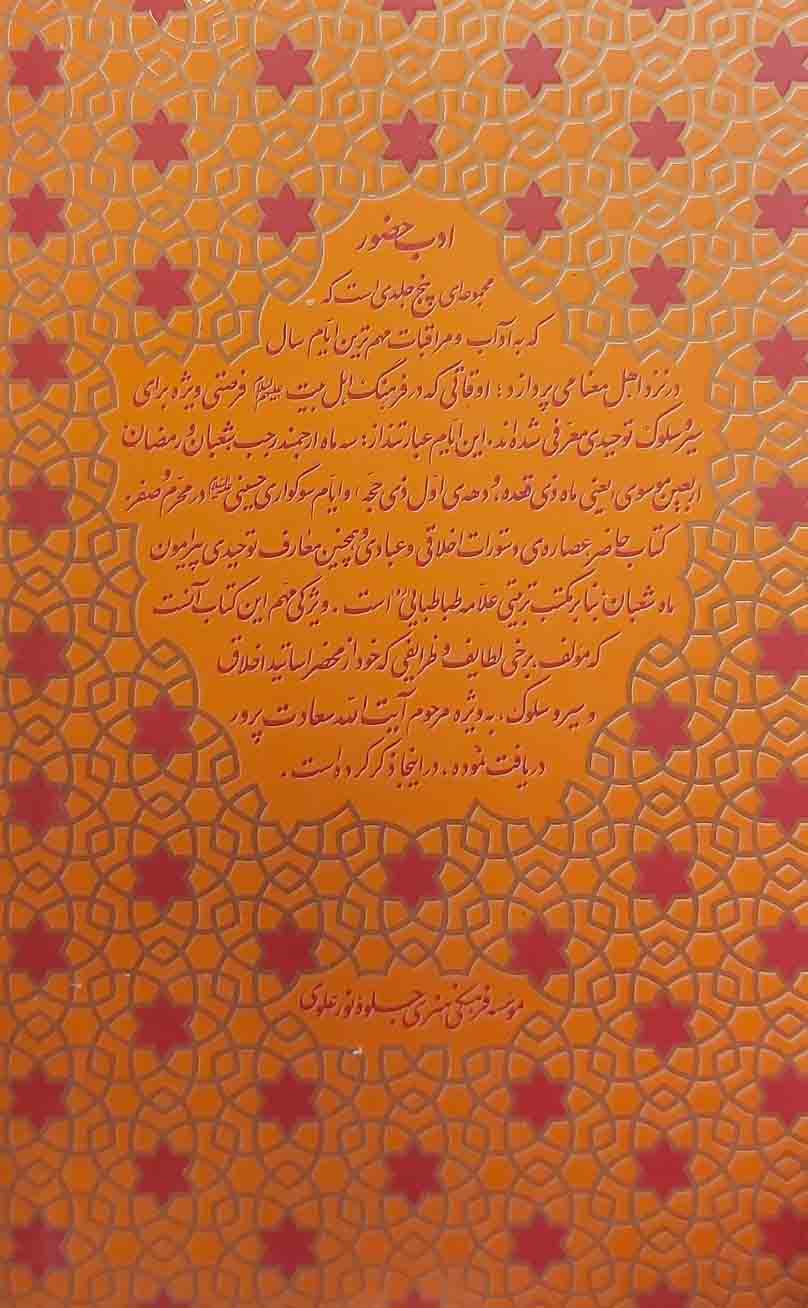 ادب حضور
مجموعه‌ای پنج جلدی است که
که به آداب و مراقبات مهم‌ترین ایام سال
در نزد اهل معنا می‌پردازد؛ اوقاتی که در فرهنگ اهل بیت علیهم‌السلام فرصتی ویژه برای
سیر و سلوک توحیدی معرّفی شده‌اند. این ایام عبارتند از: سه ماه ارجمند رجب، شعبان و رمضان
اربعین موسوی (یعنی ماه ذی قعده و دهه‌ی اوّل ذی حجه) و ایام سوگواری حسینی علیه‌السلام در محرّم و صفر.
کتاب حاضر عصاره‌ی دستورات اخلاقی و عبادی و همچنین معارف توحیدی پیرامون
ماه شعبان، بنا بر مکتب تربیتی علامه طباطبایی است. ویژگی مهم این کتاب آنست
که مولف برخی لطایف و ظرایفی که خود از محضر اساتید اخلاق
و سیر و سلوک، به ویژه مرحوم آیت الله سعادت پرور
دریافت نموده، در اینجا ذکر کرده است.
موسسه فرهنگی هنری جلوهٔ نور علوی